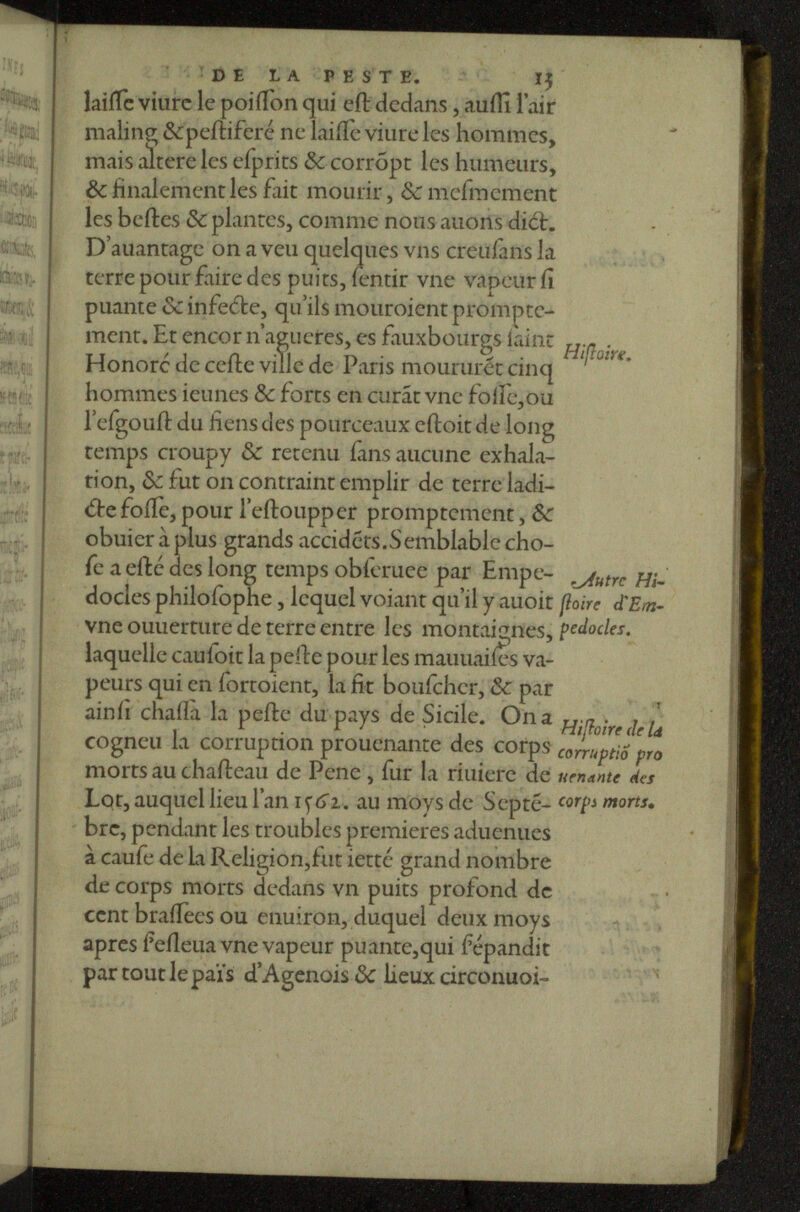 DE LA PESTE. 13
laiſſe viure le poiſſon qui eſt dedans, auſſi l'air
maling & peſtiferé ne laiſſe viure les hommes,
mais altere les eſprits & corrõpt les humeurs,
& finalement les fait mourir, & meſmement
les beſtes & plantes, comme nous auons dict.
D'auantage on a veu quelques vns creuſans la
terre pour faire des puits, ſentir vne vapeur ſi
puante & infecte, qu'ils mouroient prompte-
ment. Et encor n'agueres, es fauxbourgs ſainct
Honoré de ceſte ville de Paris moururẽt cinq
Hiſtoire.
hommes ieunes & forts en curãt vne foſſe, ou
l'eſgouſt du fiens des pourceaux eſtoit de long
temps croupy & retenu ſans aucune exhala-
tion, & fut on contraint emplir de terre ladi-
cte foſſe, pour l'eſtoupper promptement, &
obuier à plus grands accidẽts. Semblable cho-
ſe a eſté des long temps obſeruee par Empe-
docles philoſophe, lequel voiant qu'il y auoit
vne ouuerture de terre entre les montaignes,
Autre Hi-
ſtoire d'Em-
pedocles.
laquelle cauſoit la peſte pour les mauuaiſes va-
peurs qui en ſortoient, la fit bouſcher, & par
ainſi chaſſa la peſte du pays de Sicile. On a
cogneu la corruption prouenante des corps
morts au chaſteau de Pene, ſur la riuiere de
Lot, auquel lieu l'an 1562. au moys de Septẽ-
Hiſtoire de la
corruptiõ pro
uenante des
corps morts.
bre, pendant les troubles premieres aduenues
à cauſe de la Religion, fut ietté grand nombre
de corps morts dedans vn puits profond de
cent braſſees ou enuiron, duquel deux moys
apres ſ'eſleua vne vapeur puante, qui ſ'épandit
par tout le païs d'Agenois & lieux circonuoi-